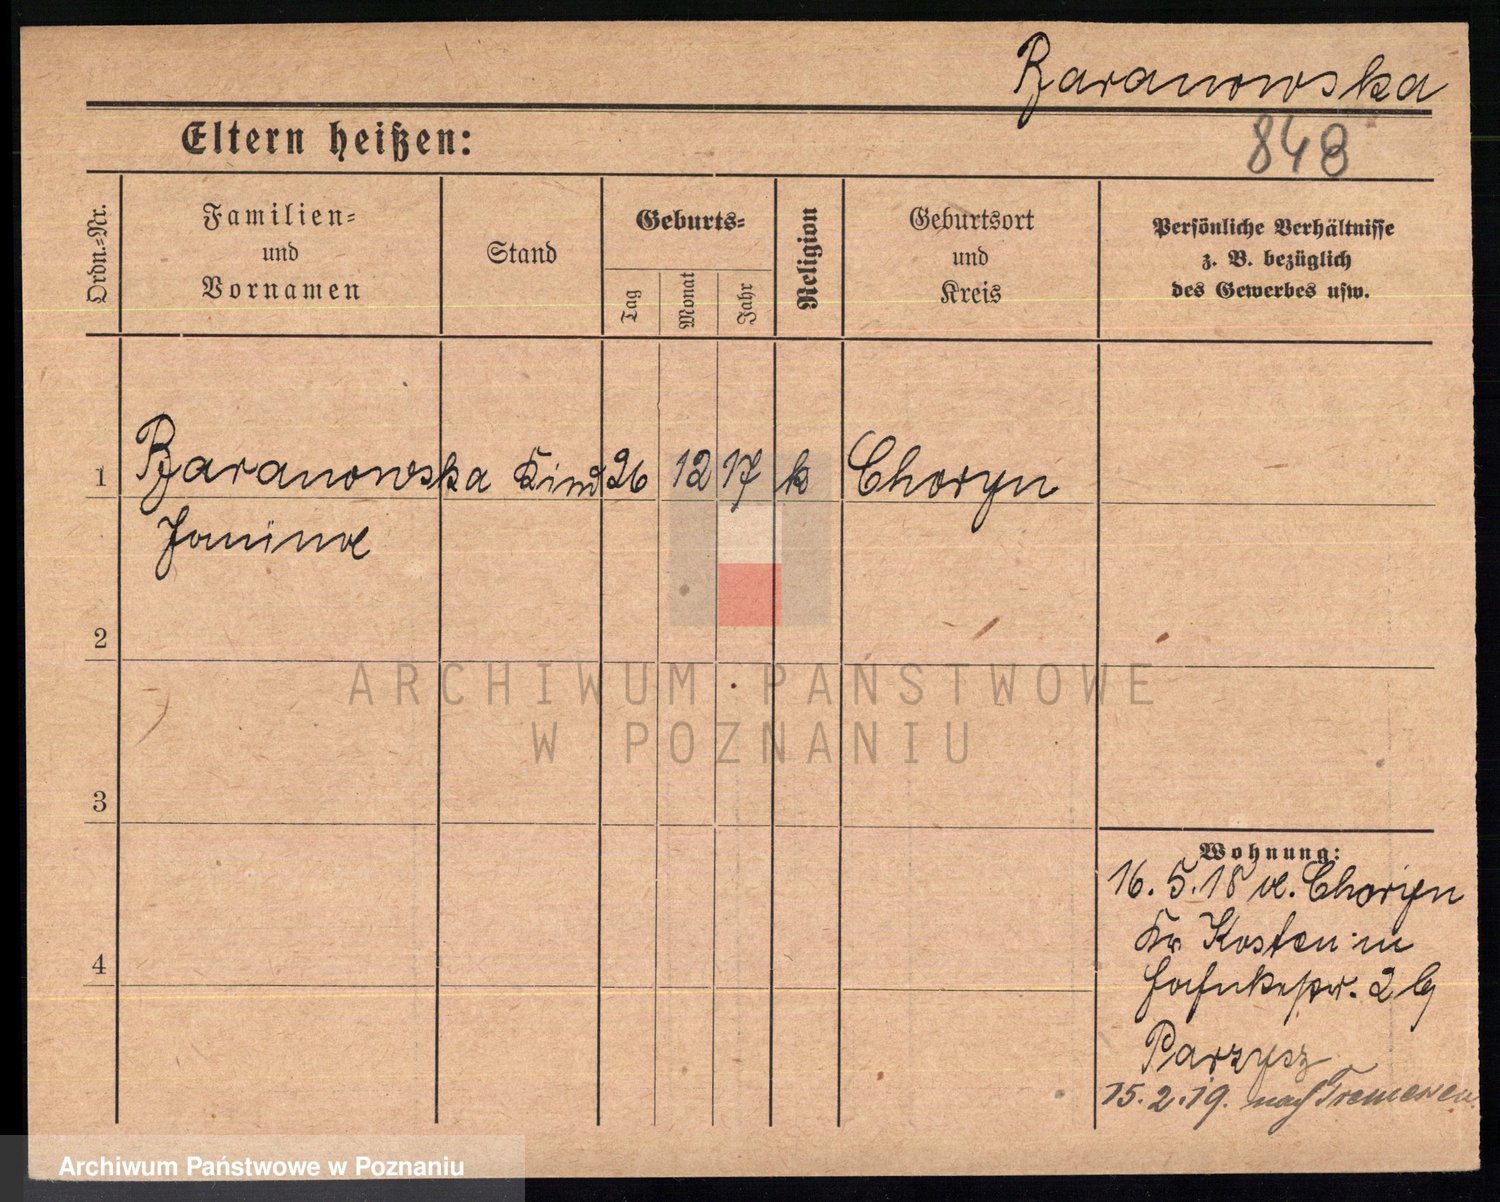 Baranowska
848
Eltern heißen:
Ordn.-Nr.
Familien-
und
Vornamen
Stand
Geburts-
Tag
Monat
Jahr
Religion
Geburtsort
und
Kreis
Persönliche Verhältnisse
z. B. bezüglich
des Gewerbes usw.
1 Baranowska Kind 26 12 17 k Choryn
Janina
2
3
4
Wohnung:
16. 5. 18 v. Choryn
Kr Kosten in
2 b
Parzysz
15. 2. 19. nach Tremessen
ARCHIWUM PAŃSTWOWE
W POZNANIU
Archiwum Państwowe w Poznaniu